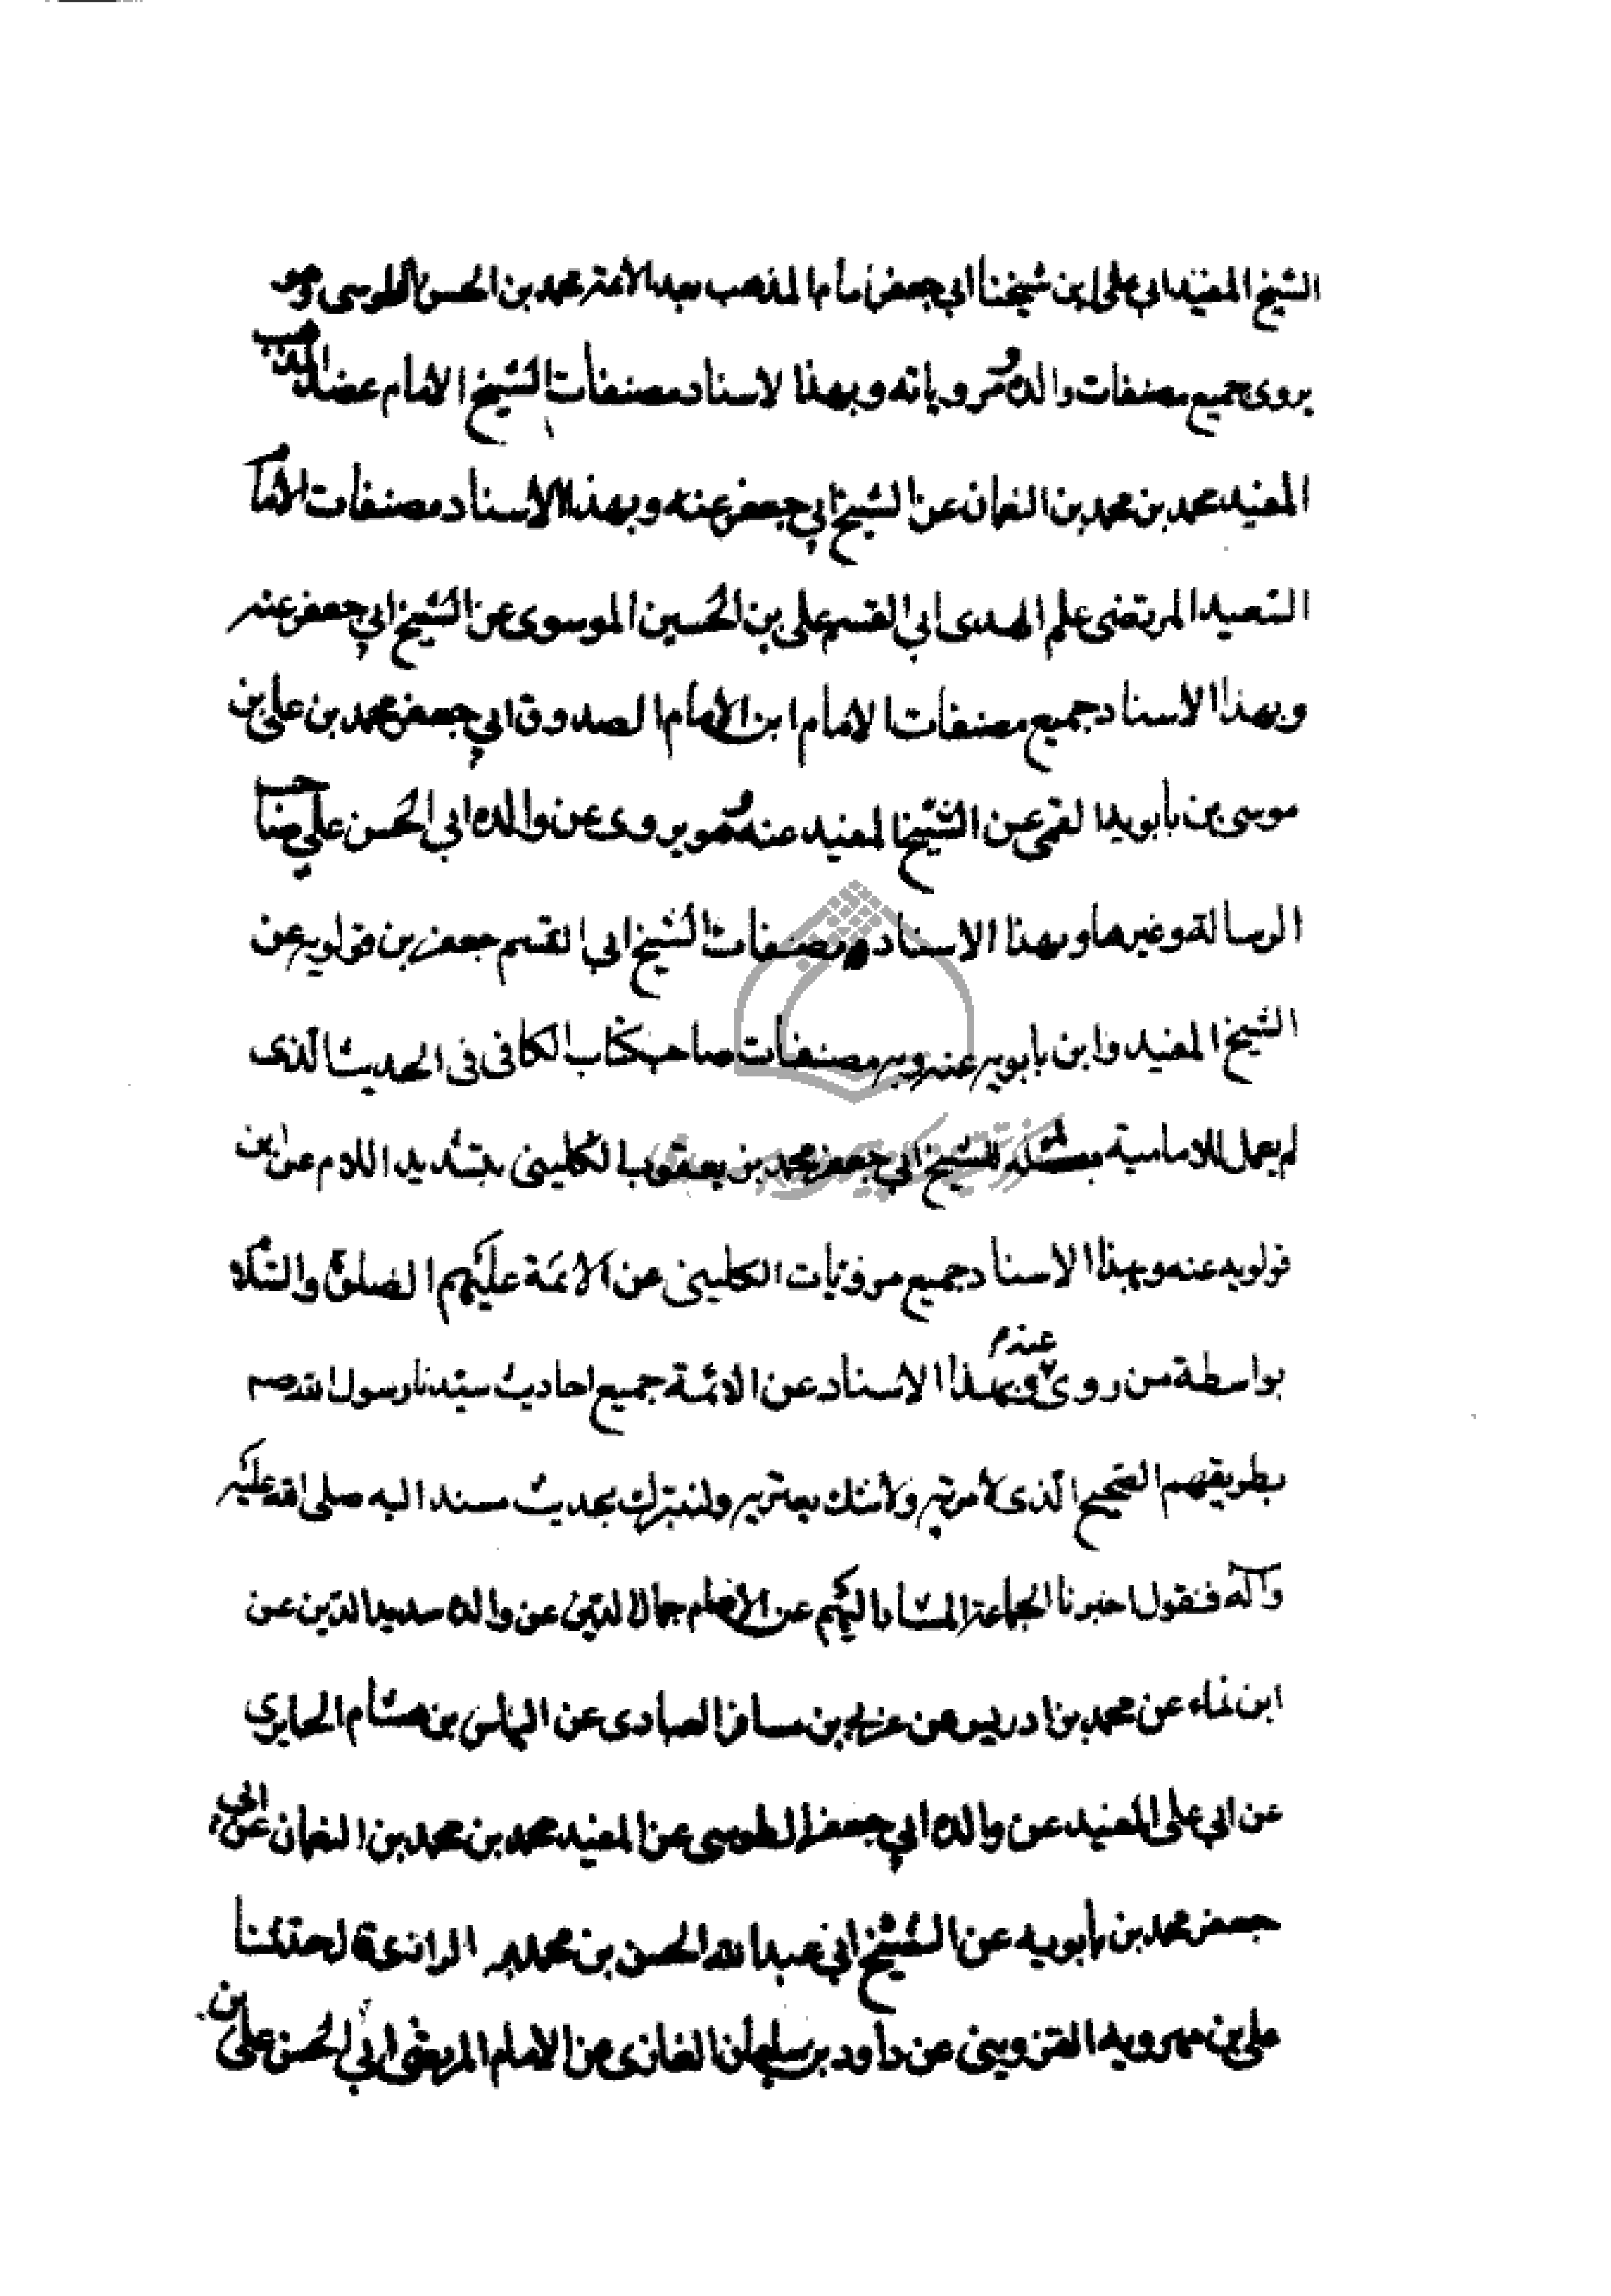 الشيخ المفيد ابي علي ابن شيخنا ابي جعفر امام المذهب بعد الائمة محمد بن الحسن الطوسي وهو
يروي جميع مصنفات والده ومروياته وبهذا لاسناد مصنفات الشيخ الامام عضد المذهب
المفيد محمد بن محمد بن النعمان عن الشيخ ابي جعفر عنه وبهذا الاسناد مصنفات الامام
السعيد المرتضى علم الهدى ابي القسم علي بن الحسين الموسوى عن الشيخ ابي جعفر عنه
وبهذا الاسناد جميع مصنفات الامام ابن الامام الصدوق ابي جعفر محمد بن علي بن
موسى بن بابويه القمي عن الشيخ المفيد عنه وهو يروى عن والده ابي الحسن علي صاحب
الرسالة وغيرها وبهذا الاسناد مصنفات الشيخ ابي القسم جعفر بن قولويه عن
الشيخ المفيد وابن بابويه عنه وبه مصنفات صاحب كتاب الكافى فى الحديث الذى
لم يعمل للامامية مثله للشيخ ابي جعفر محمد بن يعقوب الكلينى بتشديد اللام عن ابن
قولويه عنه وبهذا الاسناد جميع مرويات الكلينى عن الائمة عليهم الصلوة والسلام
بواسطة من روى عنهم وبهذا الاسناد عن الائمة جميع احاديث سيدنا رسول الله صم
بطريقهم الصحيح الذى لا مرية ولا شك يعتريه ولنتبرك بحديث مسند اليه صلى الله عليه
وآله فنقول اخبرنا الجماعة المشار اليهم عن الامام جمال الدين عن والده سديد الدين عن
ابن نماء عن محمد بن ادريس عن عربي بن مسافر العبادى عن الياس بن هشام الحايري
عن ابي علي المفيد عن والده ابي جعفر الطوسي عن المفيد محمد بن محمد بن النعمان عن ابي
جعفر محمد بن بابويه عن الشيخ ابي عبد الله الحسن بن محمد الرازى قال حدثنا
علي بن مهرويه القزوينى عن داود بن سليمان الغازى عن الامام المرتضى ابي الحسن على بن